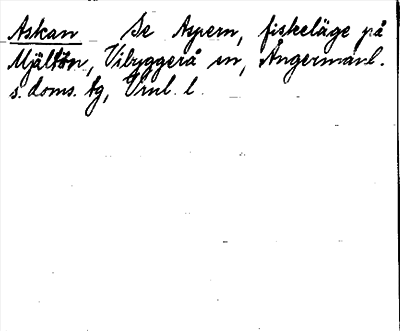 Askan Se Aspern, fiskeläge på
Mjältön, Vibyggerå sn, Ångermanl.
s. doms. tg, Vnl. l.